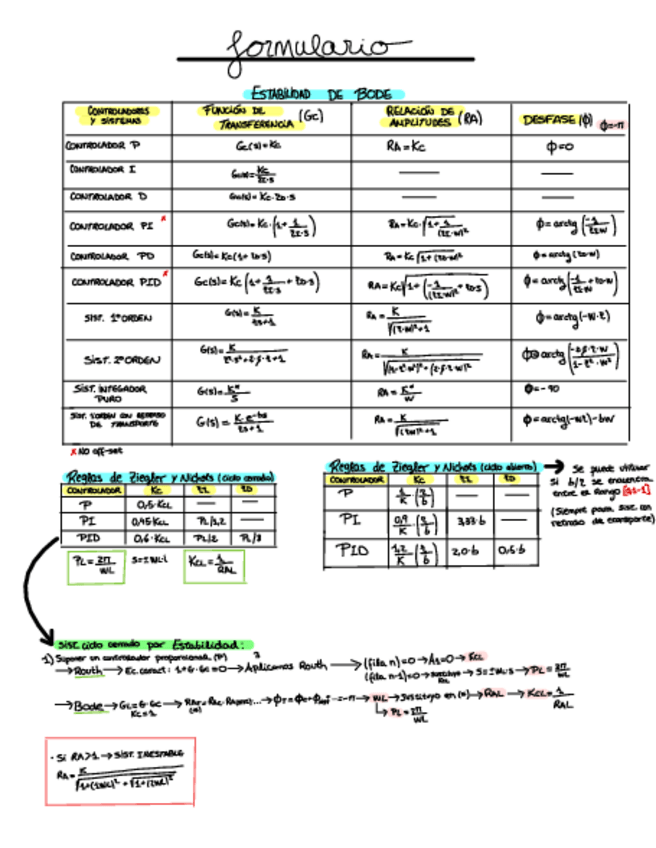 formulario
ESTABILIDAD DE BODE
CONTROLADORES Y SISTEMAS | FUNCIÓN DE TRANSFERENCIA (Gc) | RELACIÓN DE AMPLITUDES (RA) | DESFASE (ϕ) ϕ=-π
CONTROLADOR P | Gc(s)=Kc | RA=Kc | ϕ=0
CONTROLADOR I | Gc(s)=Kc/(τI·s) | — | —
CONTROLADOR D | Gc(s)=Kc·τD·s | — | —
CONTROLADOR PI x | Gc(s)=Kc·(1+1/(τI·s)) | RA=Kc·√(1+1/(τI·W)²) | ϕ=arctg(-1/(τI·W))
CONTROLADOR PD | Gc(s)=Kc(1+τD·s) | RA=Kc√(1+(τD·W)²) | ϕ=arctg(τD·W)
CONTROLADOR PID x | Gc(s)=Kc(1+1/(τI·s)+τD·s) | RA=Kc√(1+(-1/(τI·W)²+τD·s) | ϕ=arctg(-1/(τI·W)+τD·W)
SIST. 1º ORDEN | G(s)=K/(τs+1) | RA=K/√((τ·W)²+1) | ϕ=arctg(-W·τ)
SIST. 2º ORDEN | G(s)=K/(τ²·s²+2·ζ·τ+1) | RA=K/√((1-τ²·W²)²+(2·ζ·τ·W)²) | arctg(-2·ζ·τ·W/(1-τ²·W²))
SIST. INTEGADOR PURO | G(s)=K*/S | RA=K*/W | ϕ=-90
SIST. 1ORDEN CON RETRASO DE TRANSPORTE | G(s)=K·e-bs/(τs+1) | RA=K/√((τW)²+1) | ϕ=arctg(-Wτ)-bW
x NO off-set
Reglas de Ziegler y Nichols (ciclo cerrado)
CONTROLADOR | Kc | τI | τD
P | 0,5·KCL | — | —
PI | 0,45KCL | PL/1,2 | —
PID | 0,6·KCL | PL/2 | PL/8
PL=2π/WL S=±WL·i KCL=1/RAL
Reglas de Ziegler y Nichols (ciclo abierto)
CONTROLADOR | Kc | τI | τD
P | 1/K·(τ/b) | — | —
PI | 0,9/K·(τ/b) | 3,33·b | —
PID | 1,2/K·(τ/b) | 2,0·b | 0,5·b
→ Se puede utilizar
si b/τ se encuentra
entre el Rango [0,1-1]
(Siempre para sist. con
retraso de transporte)
Sist. ciclo cerrado por Estabilidad:
1) Suponer un controlador proporcional (P)
→Routh→Ec. caract: 1+G·Gc=0→Aplicamos Routh→(fila n)=0→A1=0→KCL
(fila n-1)=0→ →S=±WL·i→PL=2π/WL
→Bode→GL=G·Gc→RAT=RAc·RAproc...→ϕT=ϕc+ϕ =-π→WL→Sustituyo en (*)→RAL→KCL=1/RAL
Kc=1 (*) ↳PL=2π/WL
· SI RA>1→SIST. INESTABLE
RA=K/√(1+(1WL)²+√(1+(2WL)²